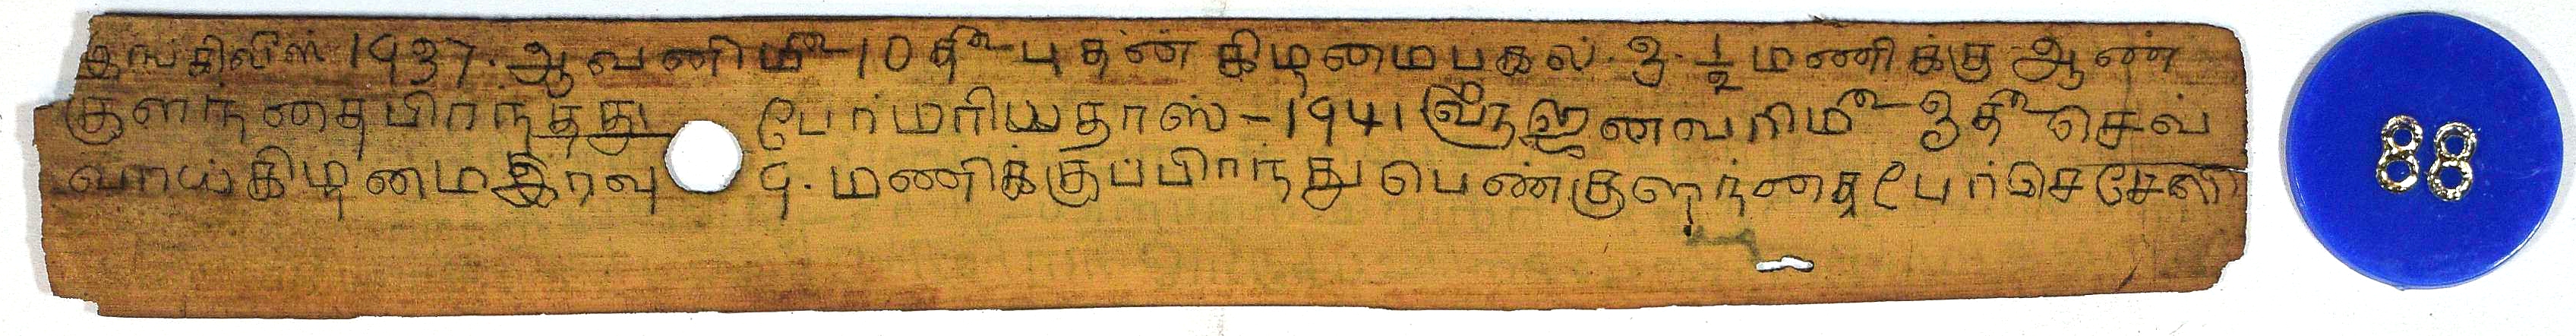 இங்கிலீஸ் 1937. ஆவணி௴ 10 தீ௳ புதன் கிழமை பகல். 3. 1/2 மணிக்கு ஆண்
குளந்தை பிறந்தது பேர் மரியதாஸ் - 1941 ௵ ஜனவரி௴ 3 தீ௳ செவ்
வாய் கிழமை இரவு 9. மணிக்குப் பிறந்து பெண் குளந்தை பேர் செசேலி
88